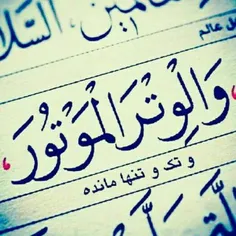 عالمين، السلا
ل عالم
وَالْوِتْرَ الْمَوْتُورَ
و تک و تنها مانده